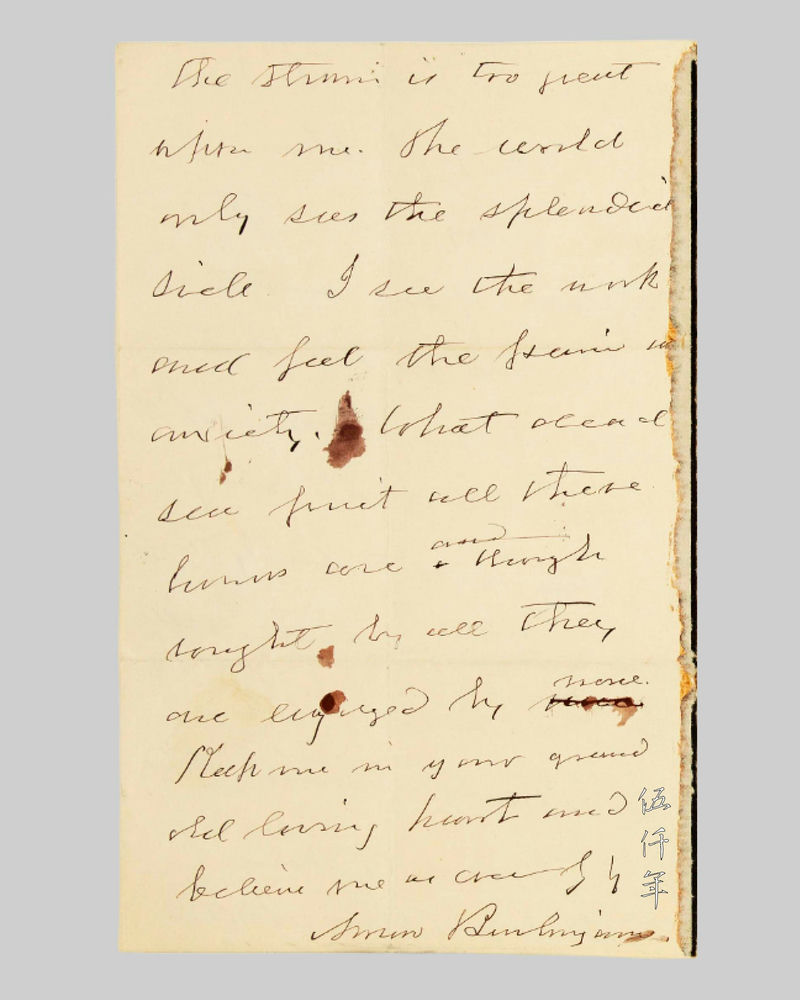 the strain is too great
upon me. The world
only sees the splendid
side. I see the work
and feel the
anxiety. What dead
sea fruit all these
honors are and though
sought by all they
are enjoyed by none.
Keep me in your grand
old loving heart and
believe me as ever
Anson Burlingame.
伍仟年